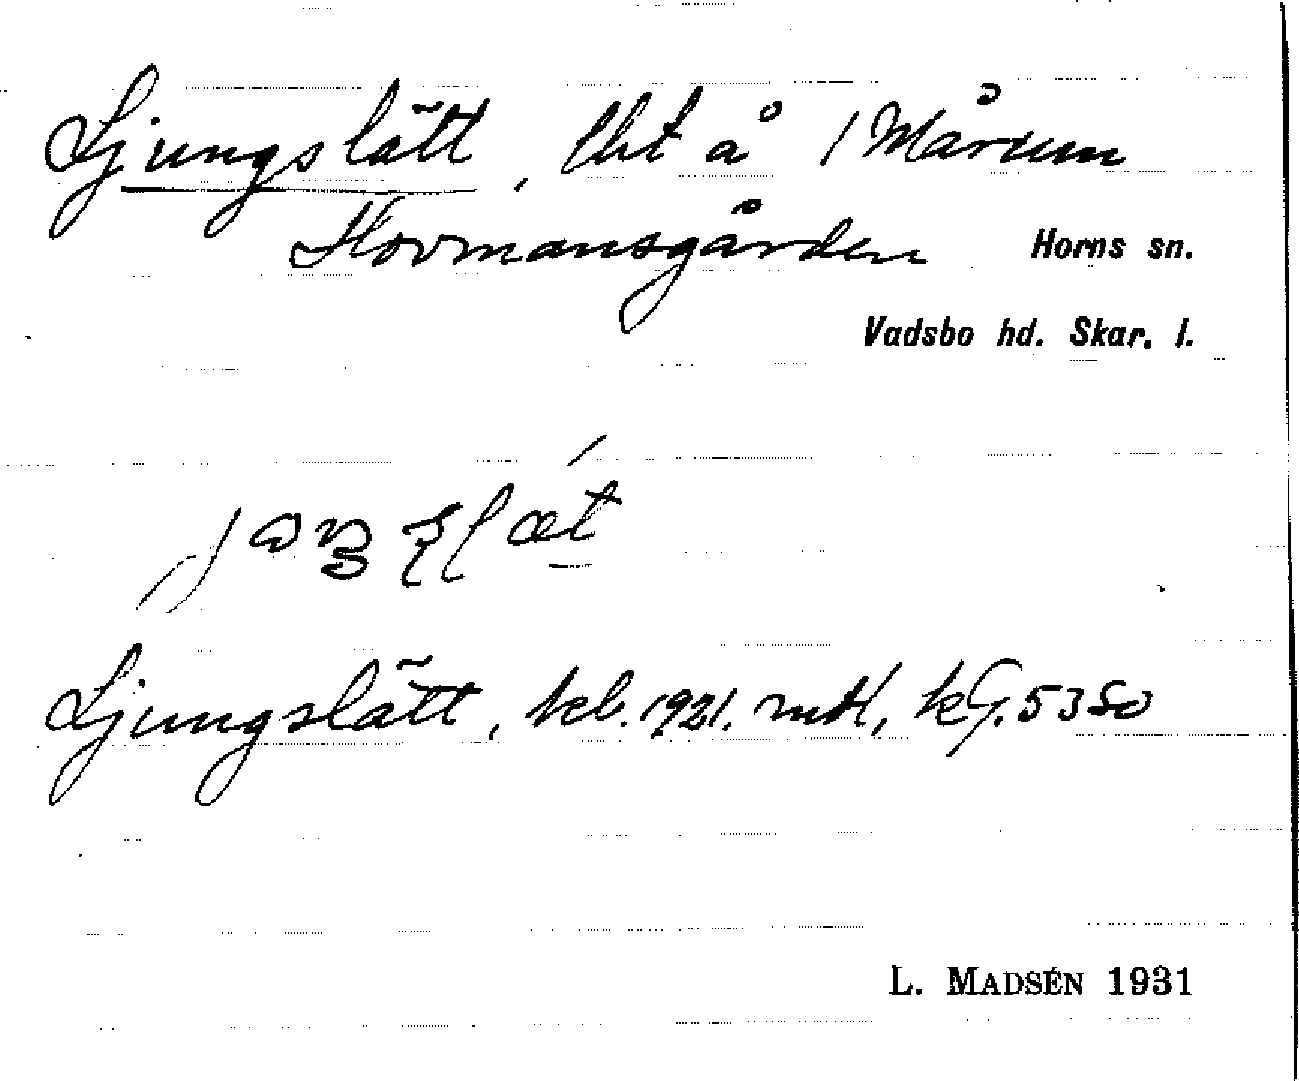 Ljungslätt, lht å 1 Mårum
Hovmansgården Horns sn.
Vadsbo hd. Skar. l.
Ljungslätt, kb. 1921. mtl, kG. 5350
L. MADSÉN 1931